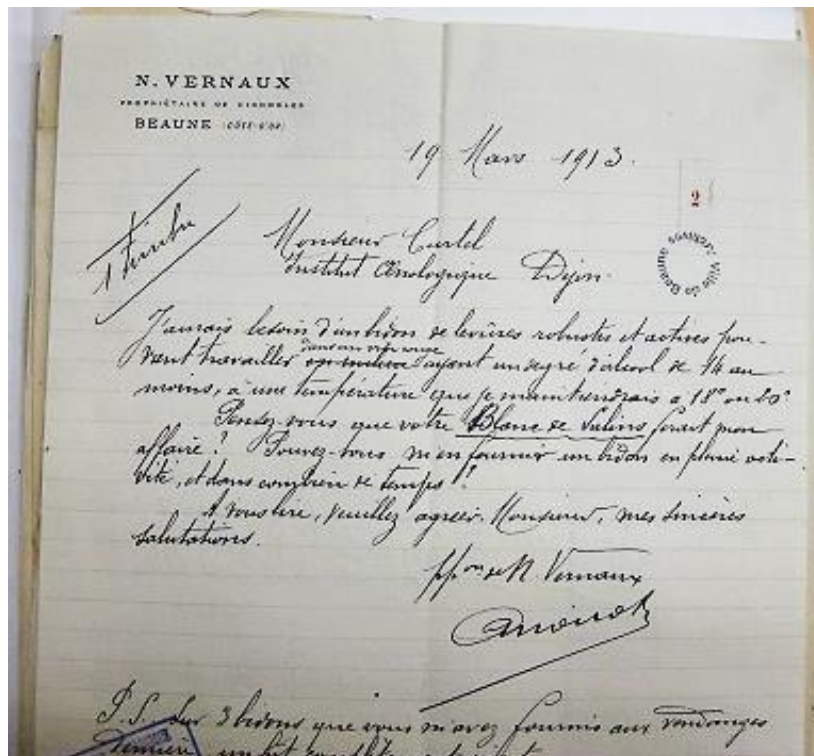 N. VERNAUX
PROPRIÉTAIRE DE VIGNOBLES
BEAUNE (CÔTE-D'OR)
19 Mars 1913.
2
1 timbre
Monsieur Curtel
Institut Œnologique Dijon.
ARCHIVES Ville de Beaune
J'aurais besoin d'un bidon de levûres robustes et actives pou-
vant travailler dans un vin rouge en milieu ayant un degré d'alcool de 14 au
moins, à une température que je maintiendrais a 18° ou 20°
Pensez-vous que votre Blanc de Salins ferait mon
affaire ? Pouvez-vous m'en fournir un bidon en pleine acti-
vité, et dans combien de temps ?
A vous lire, veuillez agréer, Monsieur, mes sincères
salutations.
ppon de N. Vernaux
P.S. Sur 3 bidons que vous m'avez fournis aux vendanges